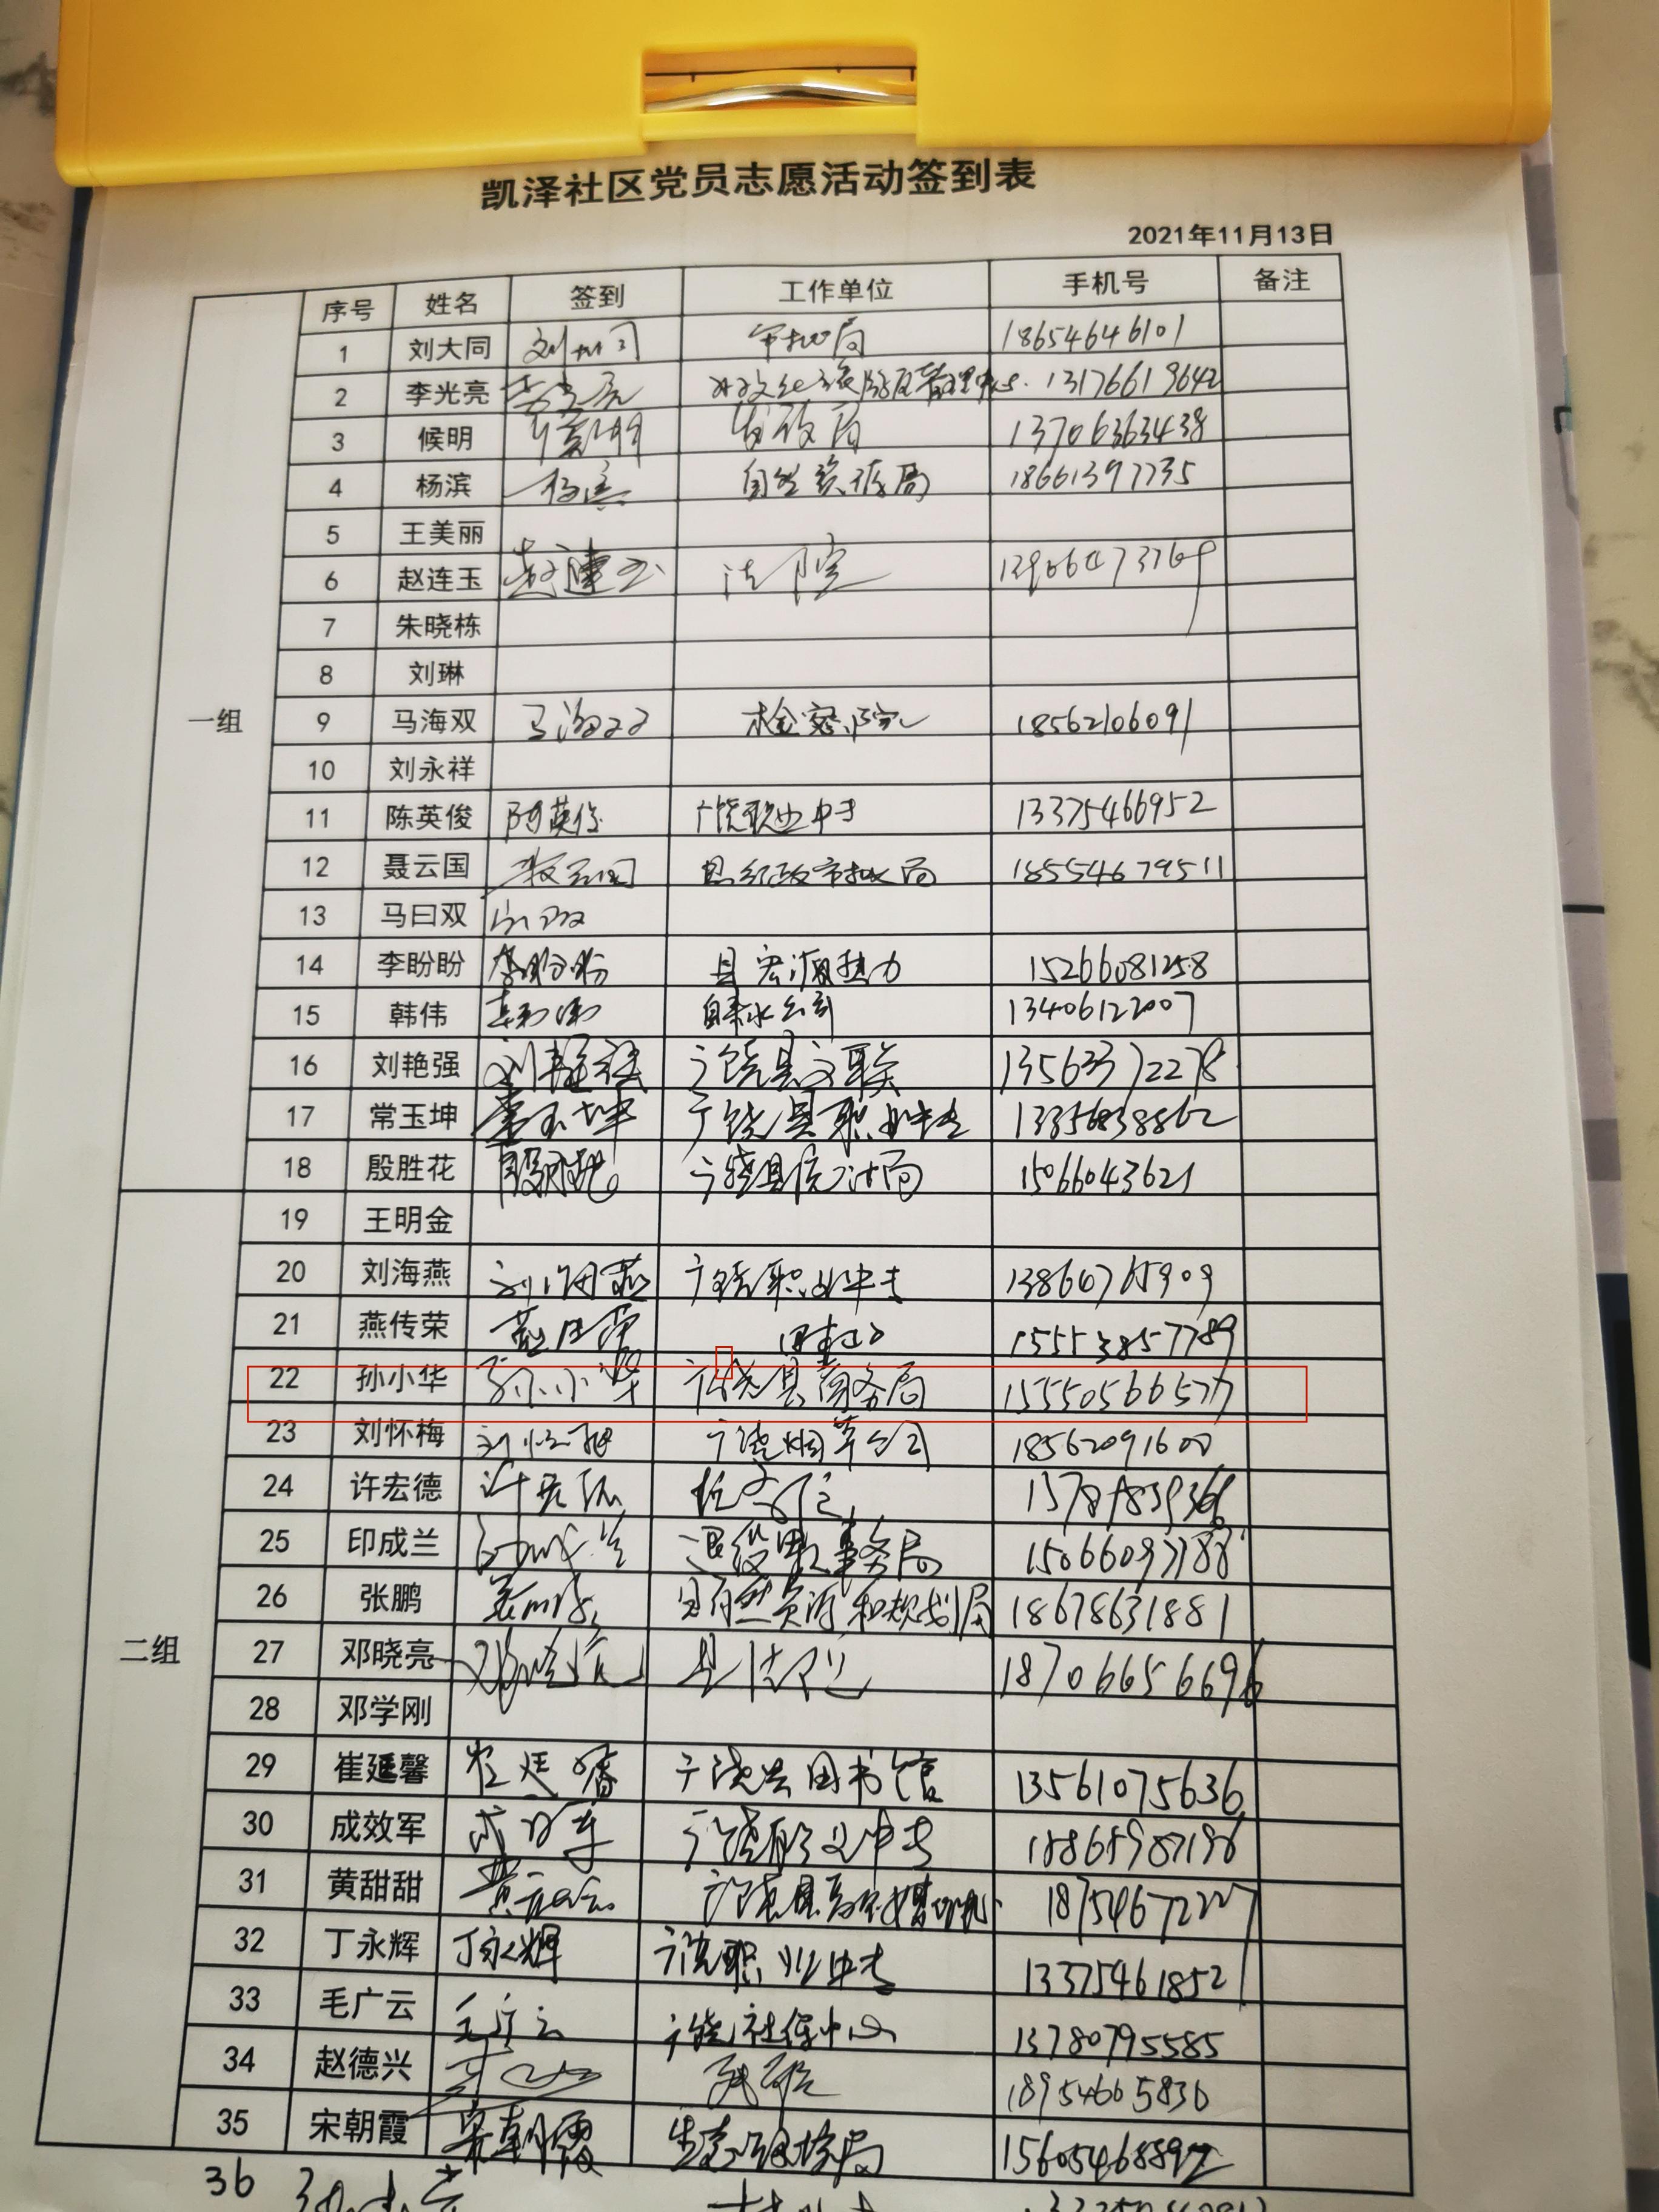 凯泽社区党员志愿活动签到表
2021年11月13日
序号 姓名 签到 工作单位 手机号 备注
一组
1 刘大同 刘大同 审批局 18654646101
2 李光亮 李光亮 13176619642
3 候明 发改局 13706363438
4 杨滨 杨滨 自然资源局 18661397735
5 王美丽
6 赵连玉 赵连玉 法院
7 朱晓栋
8 刘琳
9 马海双 马海双 检察院 18562106091
10 刘永祥
11 陈英俊 陈英俊 广饶职业中专 13375466952
12 聂云国 聂云国 18554679511
13 马曰双
14 李盼盼 李盼盼 县宏源热力 15266081258
15 韩伟 韩伟 自来水公司 13406122007
16 刘艳强 刘艳强 广饶县文联 13563372278
17 常玉坤 常玉坤 广饶县职业中专
18 殷胜花 殷胜花 广饶县信访局 15066043621
二组
19 王明金
20 刘海燕 刘海燕 广饶职业中专
21 燕传荣 燕传荣
22 孙小华 孙小华 广饶县商务局 15550566577
23 刘怀梅 刘怀梅 广饶烟草公司 18562091600
24 许宏德 许宏德
25 印成兰 印成兰 退役军人事务局
26 张鹏 张鹏 县自然资源和规划局 18678631881
27 邓晓亮 邓晓亮 县法院 18706656696
28 邓学刚
29 崔延馨 崔延馨 广饶县图书馆 13561075636
30 成效军 成效军 广饶职业中专
31 黄甜甜 黄甜甜 18754672227
32 丁永辉 丁永辉 广饶职业中专 13375461852
33 毛广云 毛广云 广饶社保中心 13780795585
34 赵德兴 18954665836
35 宋朝霞 宋朝霞 生态环境局 15605468892
36